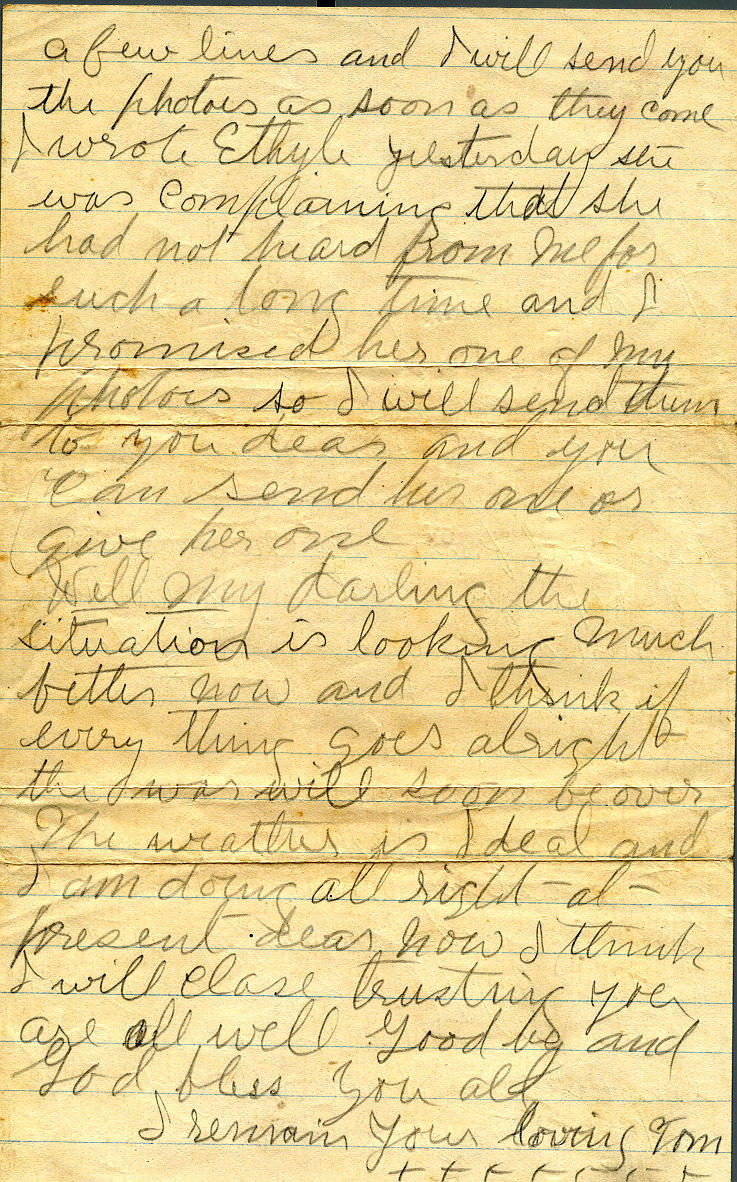 a few lines and I will send you
the photoes as soon as they come
I wrote Ethyle yesterday she
was complaining that she
had not heard from me for
such a long time and I
promised her one of my
photoes so I will send them
to you dear and you
can send her one or
give her one
Well my darling the
situation is looking much
better now and I think if
every thing goes alright
the war will soon be over
The weather is Ideal and
I am doing all right at
present dear now I think
I will close trusting you
are all well Good by and
God bless you all
I remain your loving Tom
+ + + + + + +